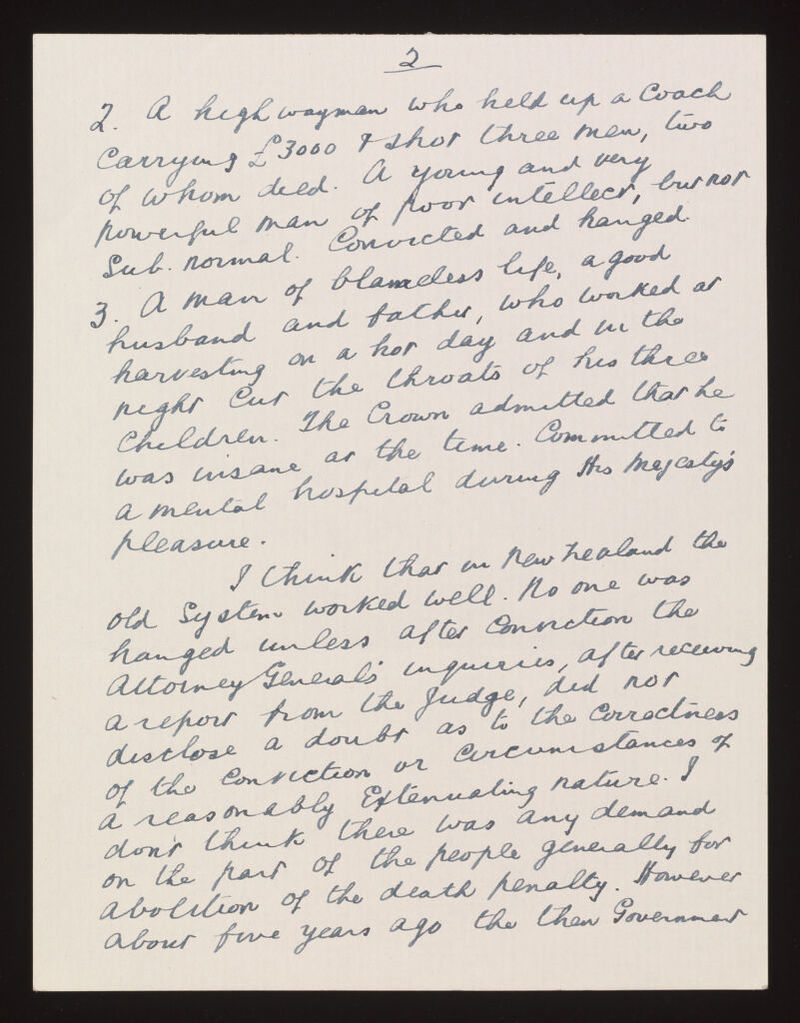 2
2. A highwayman who held up a Coach
carrying £3000 & shot three men, two
of whom died. A young and very
powerful man of poor intellect, but not
Sub. normal. Convicted and hanged.
3. A man of blameless life, a good
husband and father, who worked at
harvesting on a hot day and in the
night cut the throats of his three
children. The Crown admitted that he
was insane at the time. Committed to
a mental hospital during His Majesty's
pleasure.
I think that in New Zealand the
old System worked well. No one was
hanged unless after conviction the
Attorney General's inquiries, after receiving
a report from the Judge, did not
disclose a doubt as to the correctness
of the conviction or circumstances of
a reasonably extenuating nature. I
don't think there was any demand
on the part of the people generally for
abolition of the death penalty. However
about five years ago the then Government